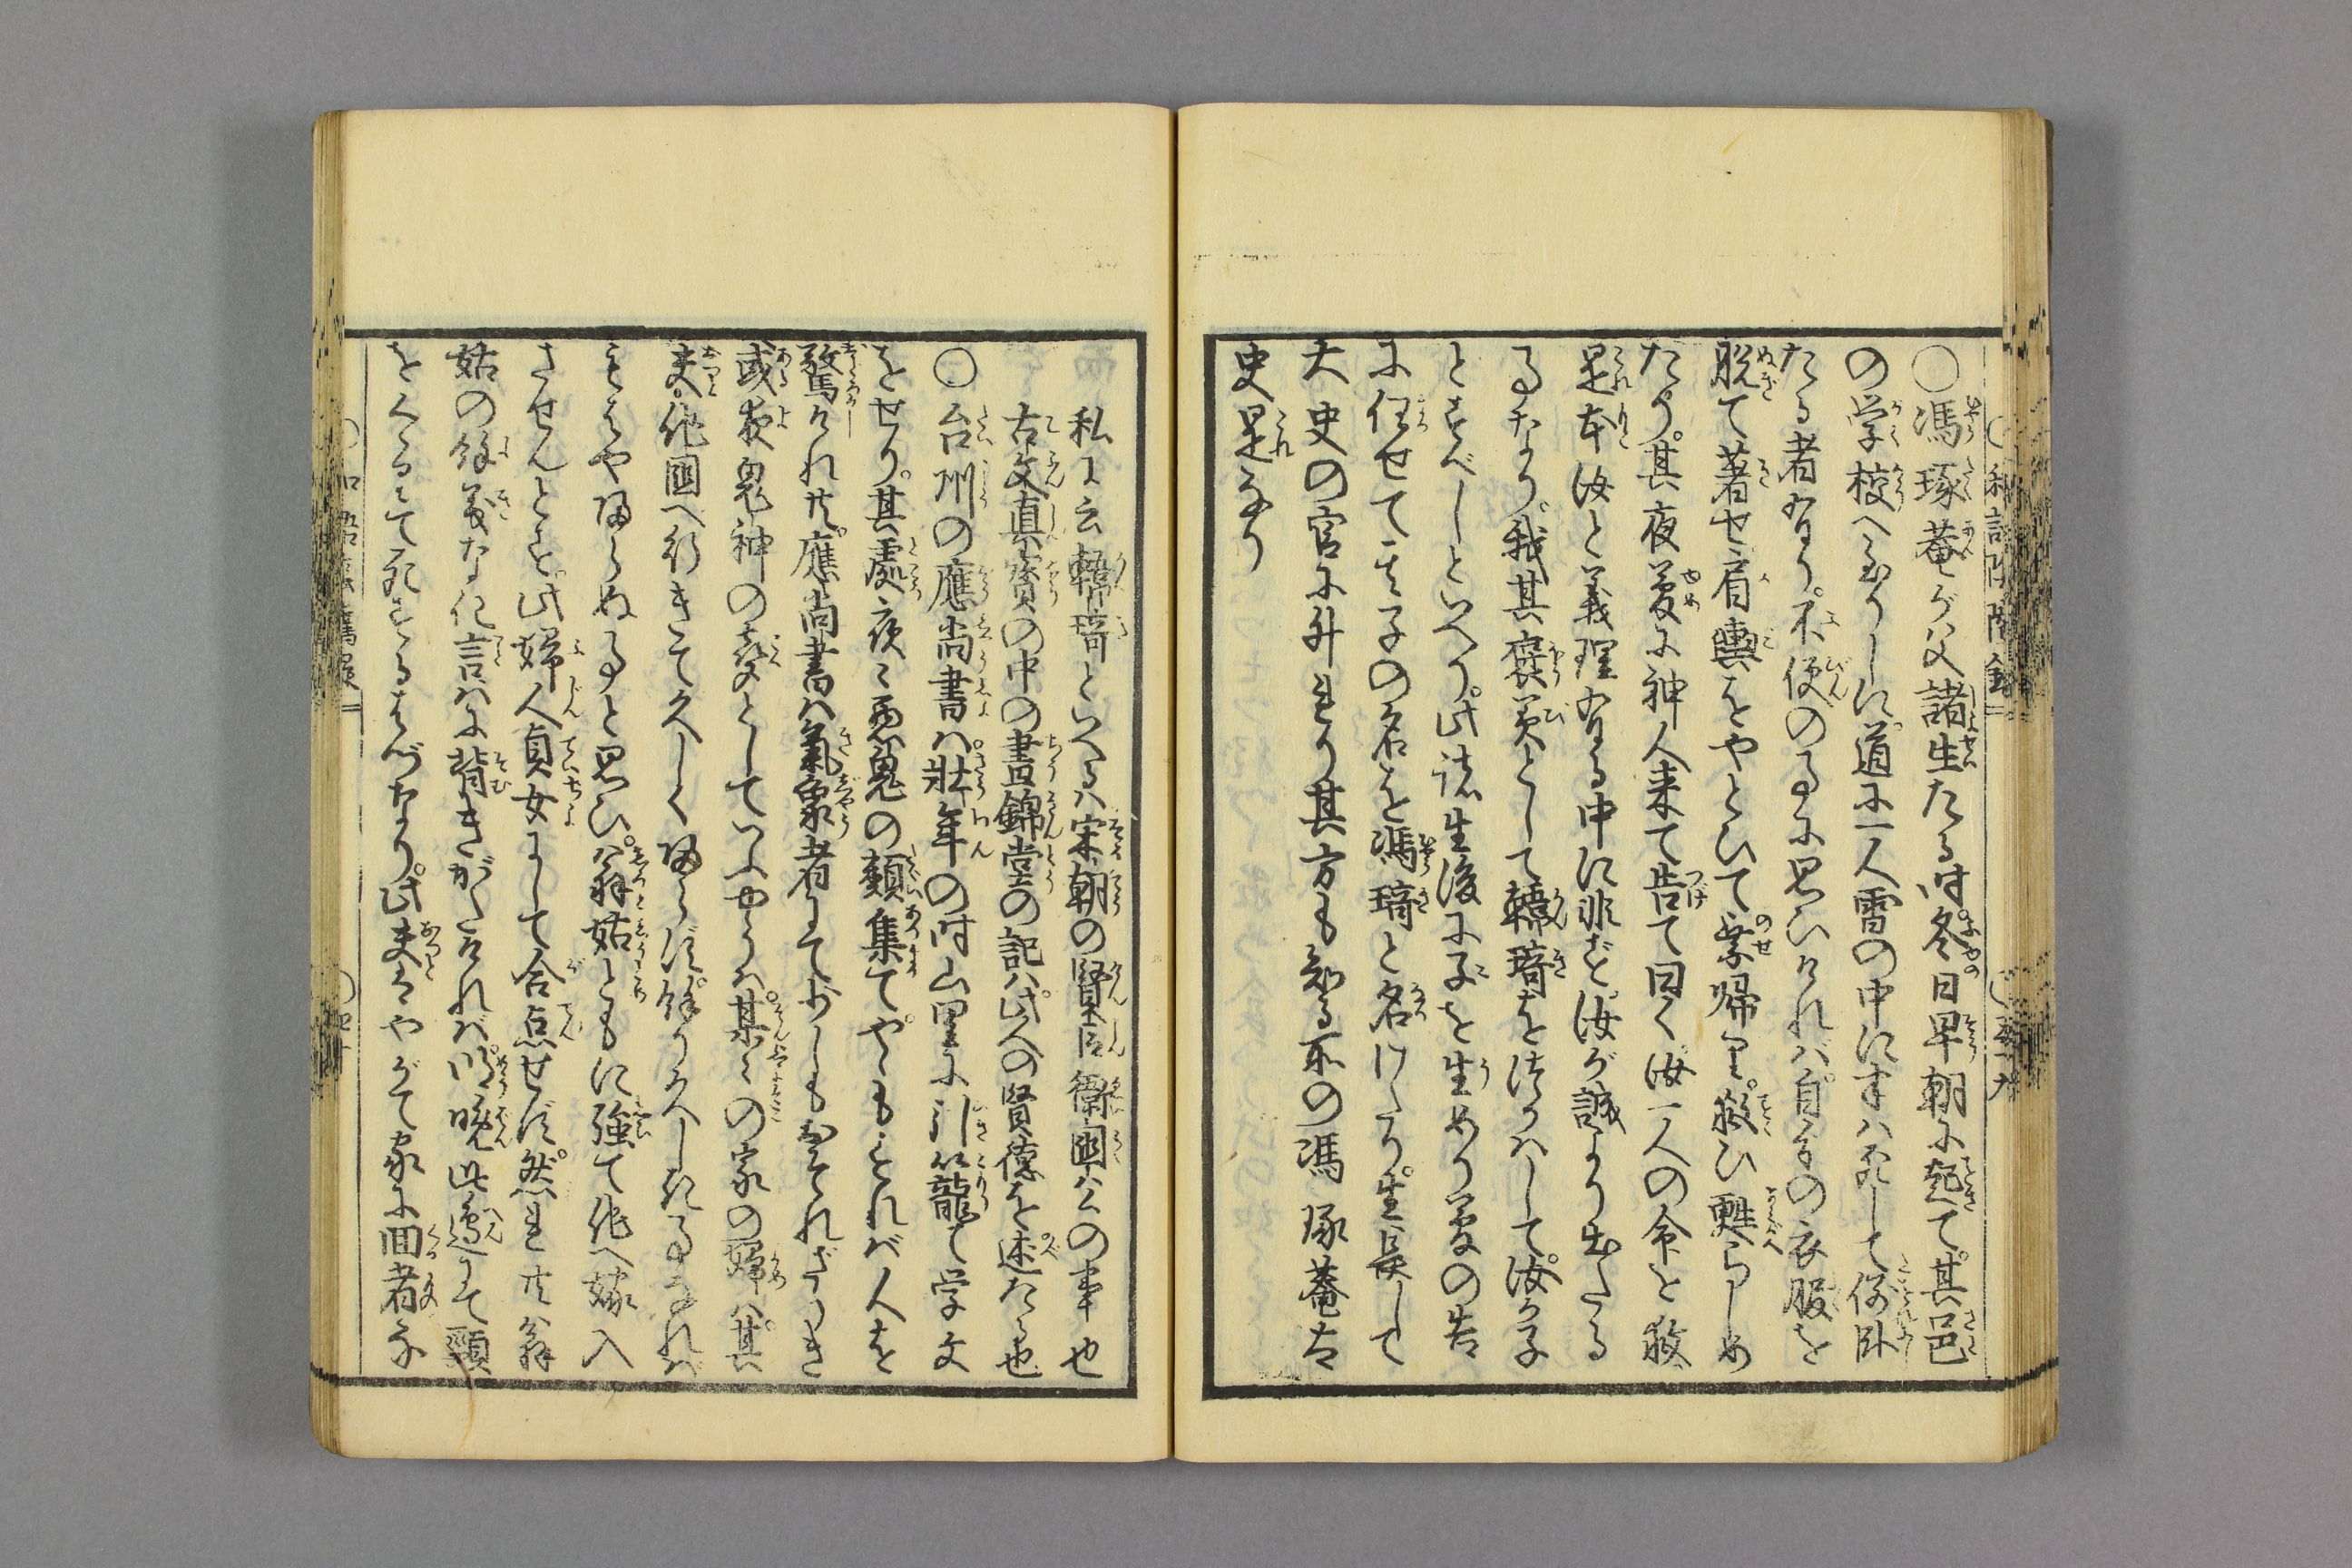 ○馮琢菴が父諸生たる時冬日早朝に起て其邑
の学校へ至りしに道に一人雪の中に半ハ死して倒臥
たる者有り不便の事に思ひけれバ自身の衣服を
脱て著せ肩輿をやとひて乗帰り救ひ甦らしめ
たり其夜夢に神人来て告て曰く汝一人の命を救
是本汝と義理有る中に非ず汝が誠より出たる
事なり我其襃美として韓琦をつかハして汝が子
とすべしといへり此諸生後に子を生めり夢の告
に任せて其子の名を馮琦と名けたり生長して
大史の官に升れり其方も知る所の馮琢菴太
史是なり
私に云韓琦といへるハ宋朝の賢臣衛國公の事也
古文真寳の中の晝錦堂の記ハ此人の賢徳を述たる也
○台州の應尚書ハ壮年の時山里に引籠て学文
をせり其處夜々悪鬼の類集てやゝもすれバ人を
驚けれ共應尚書ハ氣象者にて少しもおそれざりき
或夜鬼神の聲としていふやうハ某々の家の婦ハ其
夫他國へ行きて久しく帰らず餘り久しき事なれバ
もはや帰らぬ事と思ひ翁姑ともに強て他へ嫁入
させんとす此婦人貞女にして合点せず然れ共翁
姑の餘義なき言ハに背きがたけれバ明晩此邉にて頸
をくゝりて死するはづなり此夫はやがて家に回者な